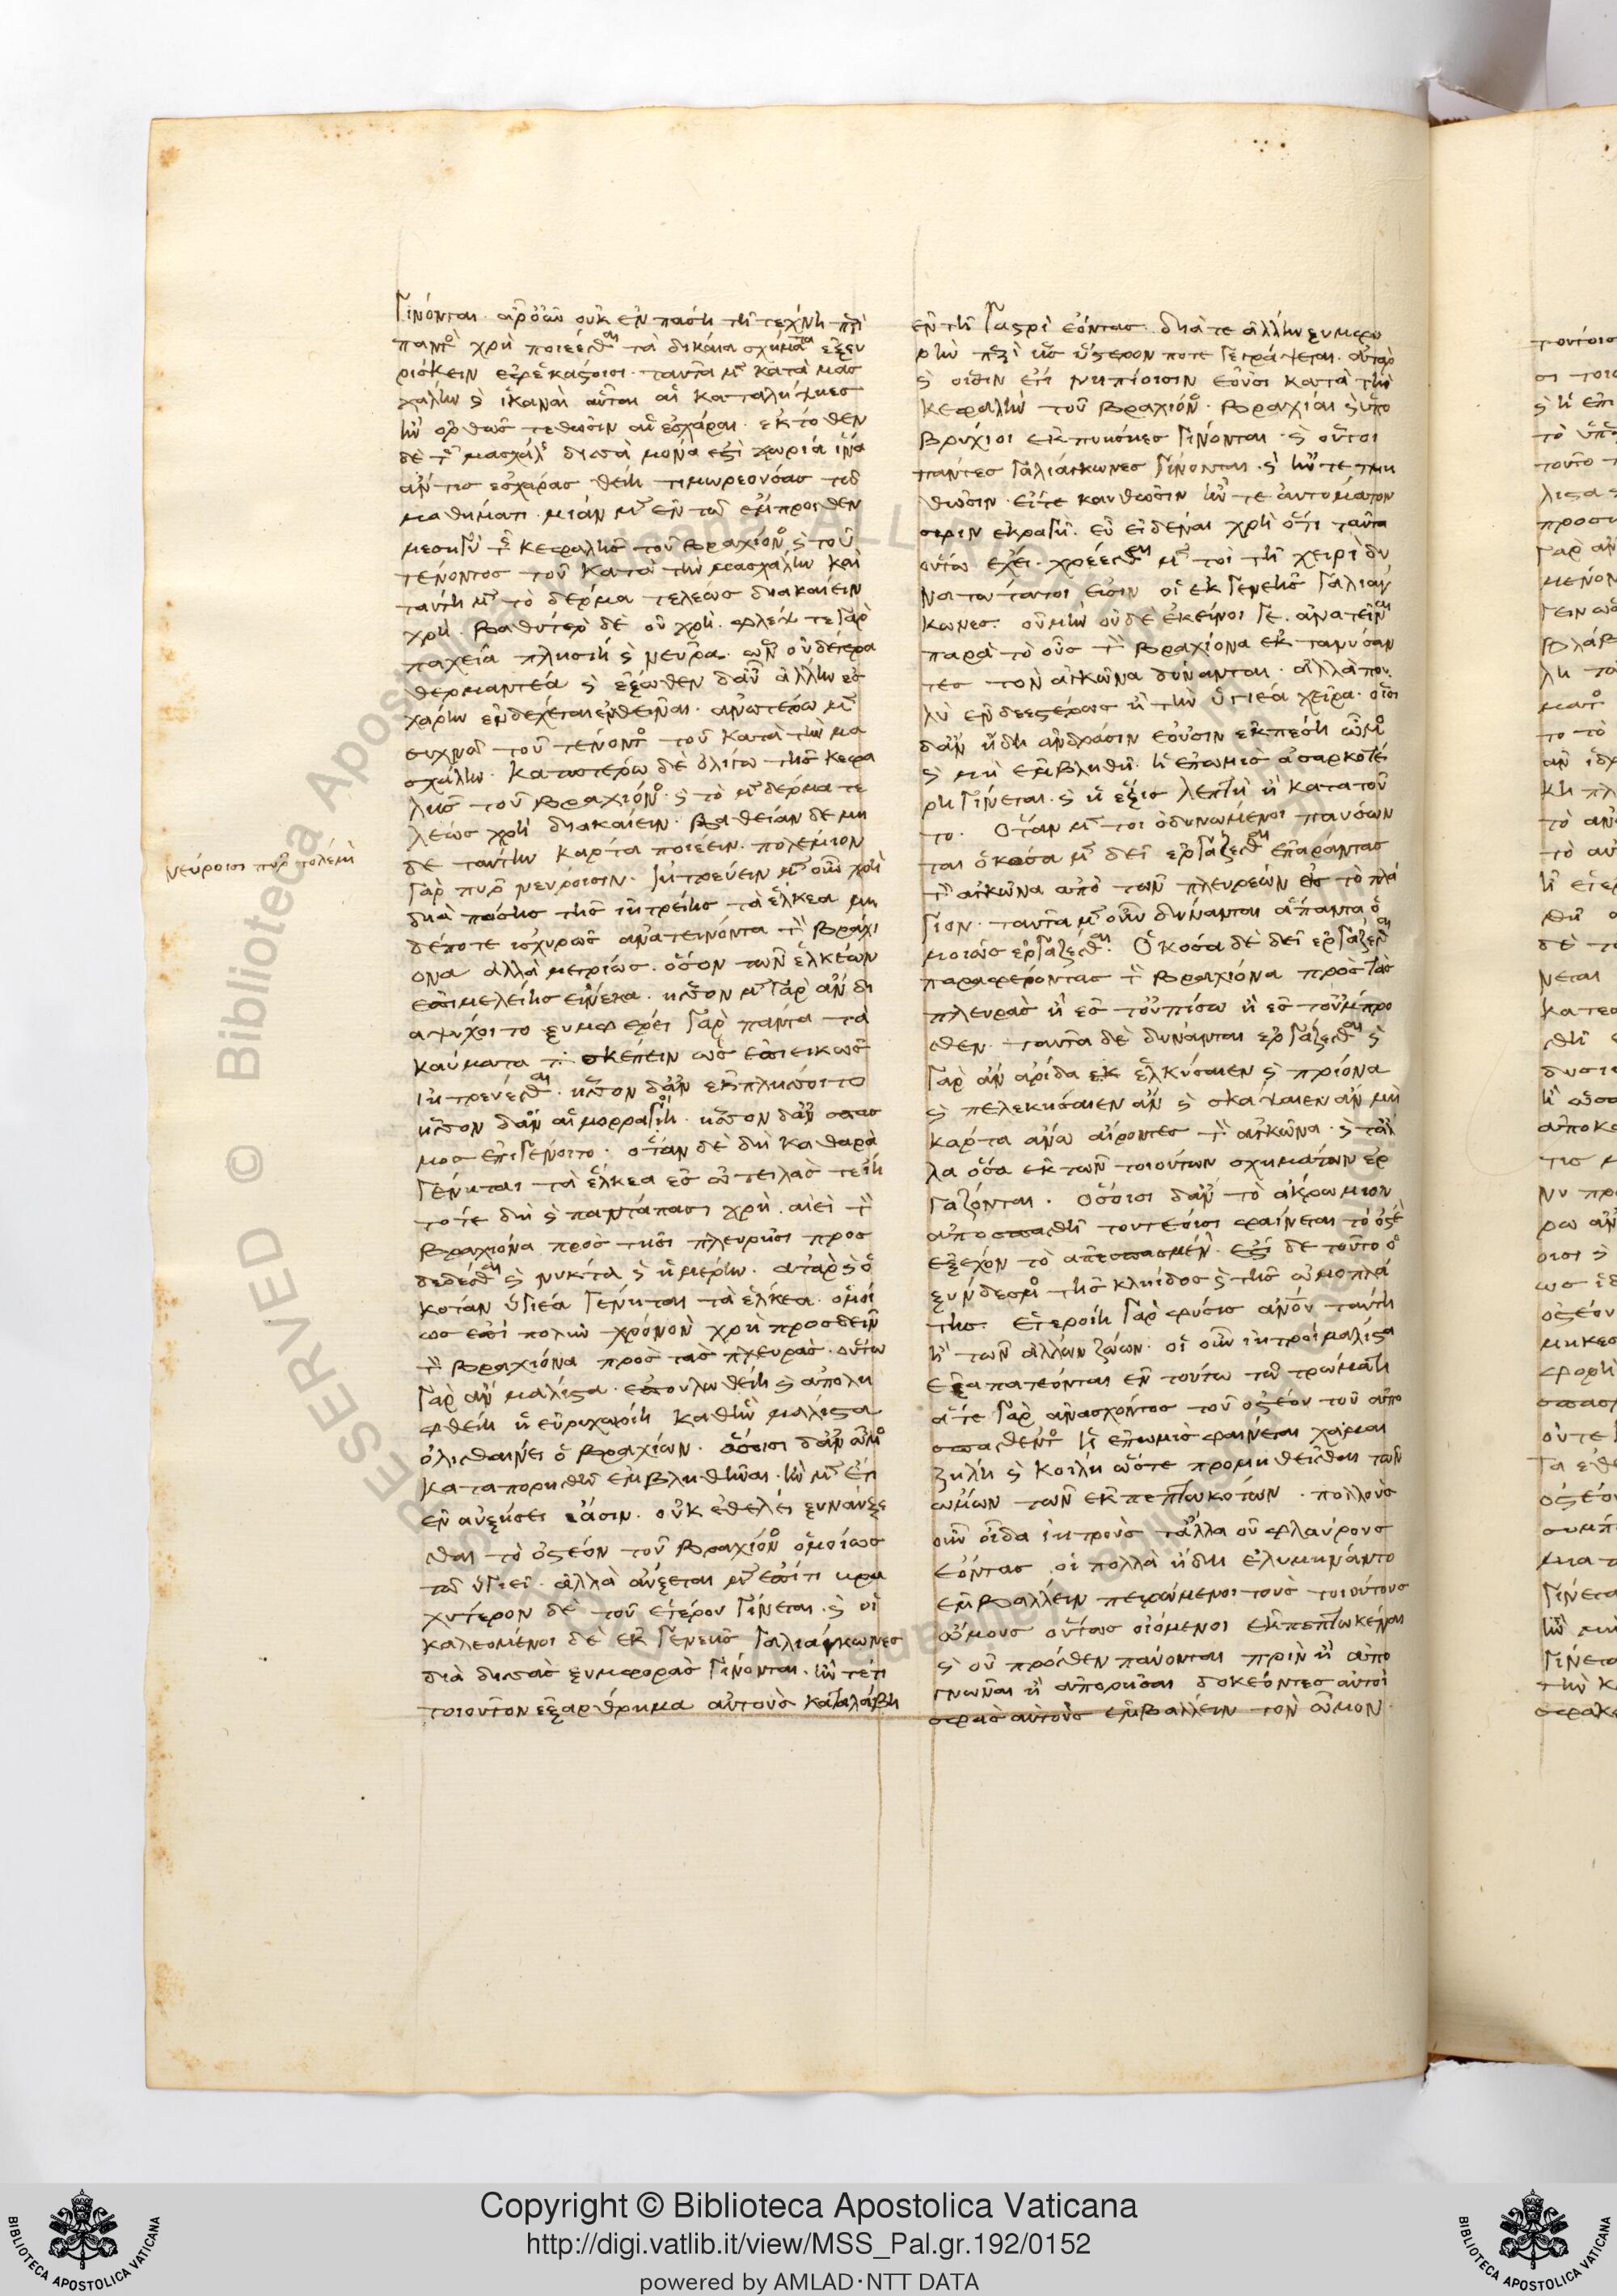 γίνονται. ἀρ᾽ οὖν οὐκ ἐν πάσῃ τῇ τέχνῃ
παντὸς χρὴ ποιέεσθαι τὰ δίκαια σχήματα ἐξευ
ρίσκειν ἑκάστοισι. ταῦτα μὲν κατὰ μασ
χάλην καὶ ἱκαναὶ αὗται αἱ καταλήψιες
ἢν ὀρθῶς τεθῶσιν αἱ ἐσχάραι. ἔκτοθεν
δὲ τῆς μασχάλης δισσὰ μόνα ἐστὶ χωρία ἵνα
ἄν τις ἐσχάρας θείη τιμωρεούσας τῷ
παθήματι. μίαν μὲν ἐν τῷ ἔμπροσθεν
μεσηγὺ τῆς κεφαλῆς τοῦ βραχίονος καὶ τοῦ
τένοντος τοῦ κατὰ τὴν μασχάλην καὶ
ταύτῃ μὲν τὸ δέρμα τελέως διακαίειν
χρή. βαθύτερον δὲ οὐ χρή. φλέψ τε γὰρ
παχεῖα πλησίη καὶ νεῦρα. ὧν οὐδέτερα
θερμαντέα καὶ ἔξωθεν δ᾽ αὖ ἄλλην ἐσ
χάρην ἐνδέχεται ἐνθεῖναι. ἀνωτέρω μὲν
συχνῷ τοῦ τένοντος τοῦ κατὰ τὴν μα
σχάλην. κατωτέρω δὲ ὀλίγῳ τῆς κεφα
λῆς τοῦ βραχίονος. καὶ τὸ μὲν δέρμα τε
λέως χρὴ διακαίειν. βαθείαν δὲ μη
δὲ ταύτην κάρτα ποιέειν. πολέμιον
νεύροισι πῦρ πολέμιον
γὰρ πῦρ νεύροισιν. ἰητρεύειν μὲν οὖν χρὴ
διὰ πάσης τῆς ἰητρείης τὰ ἕλκεα μη
δέποτε ἰσχυρῶς ἀνατείνοντα τὸν βραχί
ονα ἀλλὰ μετρίως. ὅσον τῶν ἑλκέων
ἐπιμελείης εἵνεκα. ἧσσον μὲν γὰρ ἂν δι
αψύχοιτο ξυμφέρει γὰρ πάντα τὰ
καύματα σκέπειν ὡς ἐπιεικῶς
ἰητρεύεσθαι. ἧσσον δ᾽ ἂν ἐκπλήσσοιτο
ἧσσον δ᾽ ἂν αἱμορραγοίη. ἧσσον δ᾽ ἂν σπασ
μὸς ἐπιγένοιτο. ὅταν δὲ δὴ καθαρὰ
γένηται τὰ ἕλκεα ἐς ὠτειλάς τε ἴῃ
τότε δὴ καὶ παντάπασι χρὴ αἰεὶ τὸν
βραχίονα πρὸς τῇσι πλευρῇσι προσ
δεδέσθαι καὶ νύκτα καὶ ἡμέρην. ἀτὰρ καὶ ὁ
κόταν ὑγιέα γένηται τὰ ἕλκεα. ὁμοί
ως ἐπὶ πολὺν χρόνον χρὴ προσδεῖν
τὸν βραχίονα πρὸς τὰς πλευράς. οὕτω
γὰρ ἂν μάλιστα. ἐπουλωθείη καὶ ἀπολη
φθείη ἡ εὐρυχωρίη καθ᾽ ἣν μάλιστα
ὀλισθαίνει ὁ βραχίων. ὅσοισι δ᾽ ἂν ὦμος
καταπορηθῇ ἐμβληθῆναι. ἢν μὲν ἔτι
ἐν αὐξήσει ἔωσιν. οὐκ ἐθέλει ξυναύξε
σθαι τὸ ὀστέον τοῦ βραχίονος ὁμοίως
τῷ ὑγιεῖ. ἀλλὰ αὔξεται μὲν ἐπί τι βρα
χύτερον δὲ τοῦ ἑτέρου γίνεται. καὶ οἱ
καλεόμενοι δὲ ἐκ γενεῆς γαλιάγκωνες
διὰ δισσὰς ξυμφορὰς γίνονται. ἤν τέ τι
τοιοῦτον ἐξάρθρημα αὐτοὺς καταλάβῃ
ἐν τῇ γαστρὶ ἐόντας. διά τε ἄλλην ξυμφο
ρὴν περὶ ἧς ὕστερόν ποτε γεγράψεται. ἀτὰρ
καὶ οἷσιν ἔτι νηπίοισιν ἐοῦσι κατὰ τὴν
κεφαλὴν τοῦ βραχίονος. βραχεῖαι καὶ ὑπο
βρύχιοι ἐκπυήσιες γίνονται. καὶ οὗτοι
πάντες γαλιάγκωνες γίνονται. καὶ ἤν τε τμη
θῶσιν. εἴτε καυθῶσιν ἤν τε αὐτόματόν
σφιν ἐκραγῇ. εὖ εἰδέναι χρὴ ὅτι ταῦτα
οὕτω ἔχει. χρέεσθαι μέντοι τῇ χειρὶ δυ
νατώτατοί εἰσιν οἱ ἐκ γενεῆς γαλιάγ
κωνες. οὐ μὴν οὐδὲ ἐκεῖνοί γε. ἀνατεῖναι
παρὰ τὸ οὖς τὸν βραχίονα ἐκτανύσαν
τες τὸν ἀγκῶνα δύνανται. ἀλλὰ που
λὺ ἐνδεεστέρως ἢ τὴν ὑγιέα χεῖρα. οἷσι
δ᾽ ἂν ἤδη ἀνδράσιν ἐοῦσιν ἐκπέσῃ ὦμος
καὶ μὴ ἐμβληθῇ. ἡ ἐπωμὶς ἀσαρκοτέ
ρη γίνεται. καὶ ἡ ἕξις λεπτὴ ἡ κατὰ τοῦ
το. Ὅταν μέντοι ὀδυνώμενοι παύσων
ται ὁκόσα μὲν δεῖ ἐργάζεσθαι ἐπάραντας
τὸν ἀγκῶνα ἀπὸ τῶν πλευρέων ἐς τὸ πλά
γιον. ταῦτα μὲν οὖν δύνανται ἅπαντα ὁ
μοίως ἐργάζεσθαι. Ὁκόσα δὲ δεῖ ἐργάζεσθαι
παραφέροντας τὸν βραχίονα πρὸς τὰς
πλευρὰς ἢ ἐς τοὐπίσω ἢ ἐς τοὔμπρο
σθεν. ταῦτα δὲ δύνανται ἐργάζεσθαι καὶ
γὰρ ἂν ἀρίδα ἑλκύσαιεν καὶ πρίονα
καὶ πελεκήσαιεν ἂν καὶ σκάψαιεν ἂν μὴ
κάρτα ἄνω αἴροντες τὸν ἀγκῶνα. καὶ τἆλ
λα ὅσα ἐκ τῶν τοιούτων σχημάτων ἐρ
γάζονται. Ὅσοισι δ᾽ ἂν τὸ ἀκρώμιον
ἀποσπασθῇ τουτέοισι φαίνεται τὸ ὀστέον
ἐξέχον τὸ ἀπεσπασμένον. ἔστι δὲ τοῦτο ὁ
ξύνδεσμος τῆς κληῖδος καὶ τῆς ὠμοπλά
της. ἑτεροίη γὰρ φύσις ἀνθρώπου ταύτῃ
ἢ τῶν ἄλλων ζώων. οἱ οὖν ἰητροὶ μάλιστα
ἐξαπατέονται ἐν τούτῳ τῷ τρώματι
ἅτε γὰρ ἀνασχόντος τοῦ ὀστέου τοῦ ἀπο
σπασθέντος ἡ ἐπωμὶς φαίνεται χαμαι
ζήλη καὶ κοίλη ὥστε προμηθεῖσθαι τῶν
ὤμων τῶν ἐκπεπτωκότων. πολλοὺς
οὖν οἶδα ἰητροὺς τἆλλα οὐ φλαύρους
ἐόντας οἳ πολλὰ ἤδη ἐλυμήναντο
ἐμβάλλειν πειρώμενοι τοὺς τοιούτους
ὤμους οὕτως οἰόμενοι ἐκπεπτωκέναι
καὶ οὐ πρόσθεν παύονται πρὶν ἢ ἀπο
γνῶναι ἢ ἀπορῆσαι δοκέοντες αὐτοὶ
σφᾶς αὐτοὺς ἐμβάλλειν τὸν ὦμον.
Copyright © Biblioteca Apostolica Vaticana
http://digi.vatlib.it/view/MSS_Pal.gr.192/0152
powered by AMLAD·NTT DATA